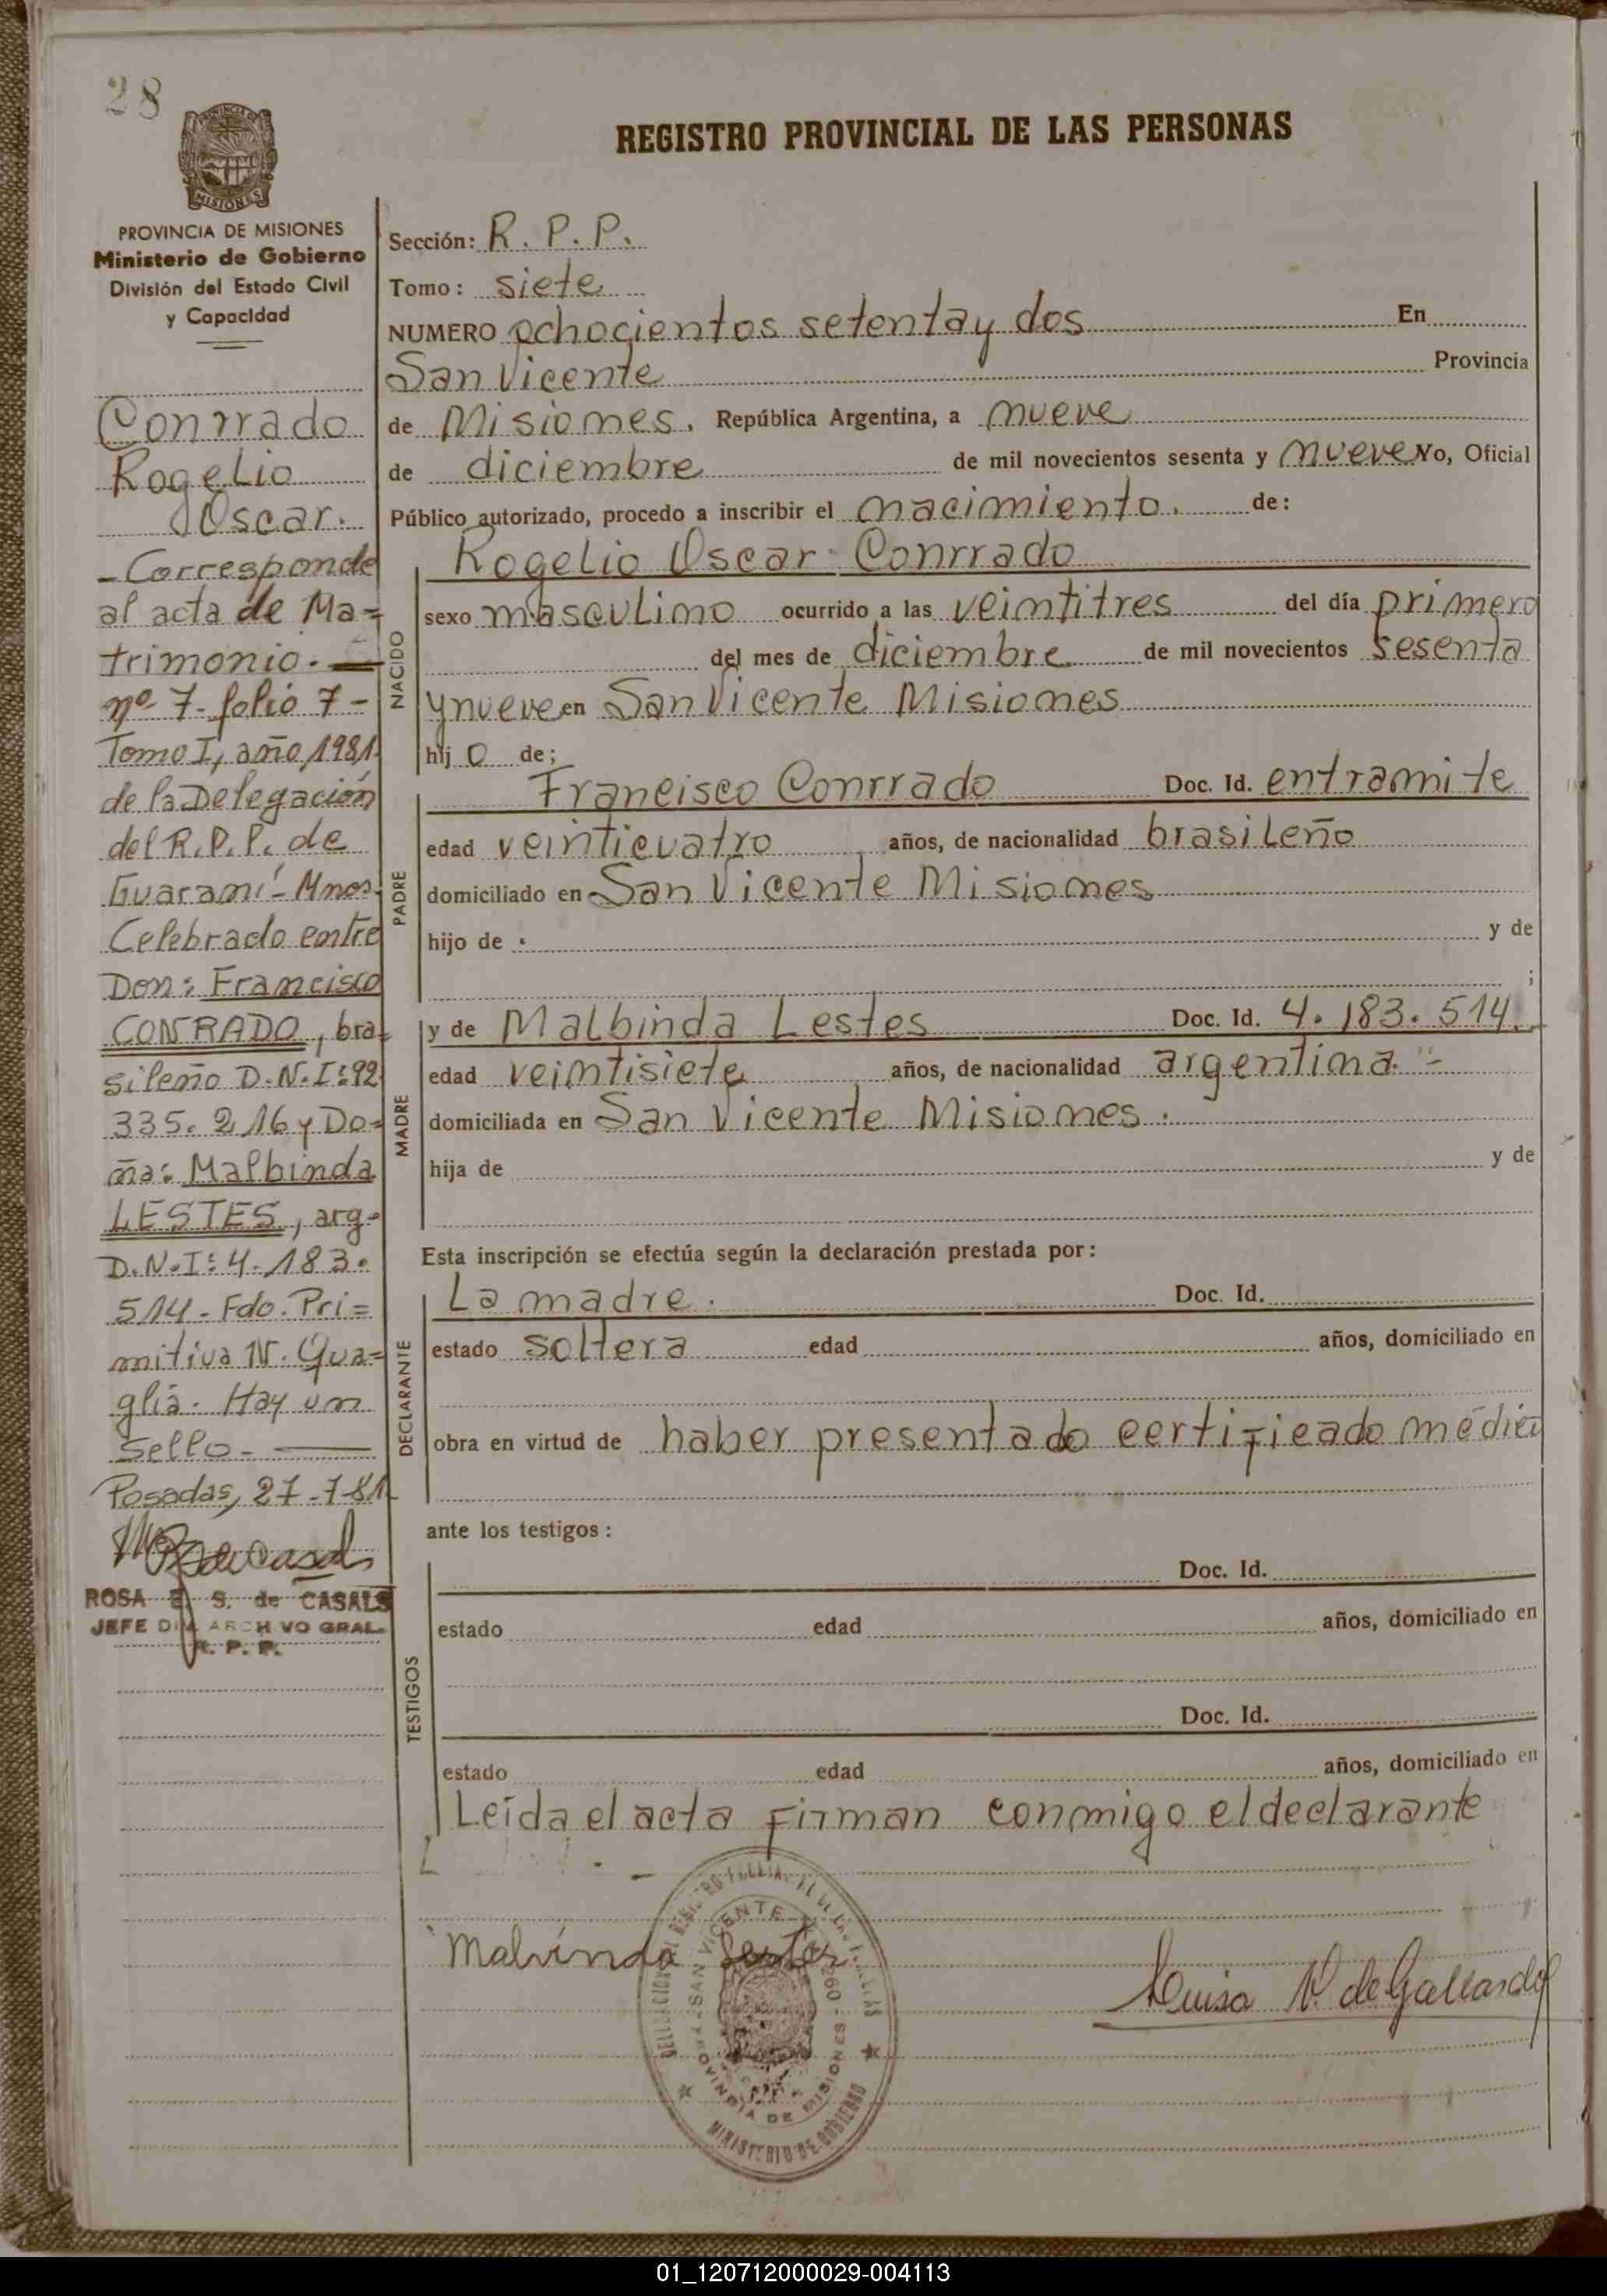 28
PROVINCIA DE MISIONES
Ministerio de Gobierno
División del Estado Civil
y Capacidad
Conrrado
Rogelio
Oscar.
- Corresponde
al acta de Ma=
trimonio. —
nº 7- folio 7-
Tomo I, año 1981
de la Delegación
del R.P.P. de
Guaraní - Mnes.
Celebrado entre
Don: Francisco
CONRADO, bra=
sileño D.N.I: 92.
335. 216 y Do=
ña: Malbinda
LESTES, arg-
D.N.I: 4. 183.
514 - Fdo. Pri=
mitiva N. Qua=
glia. Hay un
Sello. —
Posadas, 27-7-81
ROSA E. S. de CASALS
JEFE DIV. ARCHIVO GRAL.
R. P. P.
REGISTRO PROVINCIAL DE LAS PERSONAS
Sección: R. P. P.
Tomo: siete
NUMERO ochocientos setenta y dos En
San Vicente Provincia
de Misiones. República Argentina, a nueve
de diciembre de mil novecientos sesenta y nueve Yo, Oficial
Público autorizado, procedo a inscribir el nacimiento. de:
Rogelio Oscar Conrrado
NACIDO
sexo masculino ocurrido a las veintitres del día primero
del mes de diciembre de mil novecientos sesenta
y nueve en San Vicente Misiones
hij o de;
PADRE
Francisco Conrrado Doc. Id. entramite
edad veinticuatro años, de nacionalidad brasileño
domiciliado en San Vicente Misiones
hijo de . y de
;
MADRE
y de Malbinda Lestes Doc. Id. 4. 183. 514.
edad veintisiete años, de nacionalidad argentina. -
domiciliada en San Vicente Misiones.
hija de y de
Esta inscripción se efectúa según la declaración prestada por:
DECLARANTE
La madre. Doc. Id.
estado soltera edad años, domiciliado en
obra en virtud de haber presentado certificado médico
ante los testigos:
TESTIGOS
Doc. Id.
estado edad años, domiciliado en
Doc. Id.
estado edad años, domiciliado en
Leída el acta firman conmigo el declarante
Malvinda Lestes
Luisa N. de Gallardo
SAN VICENTE
PROVINCIA DE MISIONES
MINISTERIO DE GOBIERNO
01_120712000029-004113